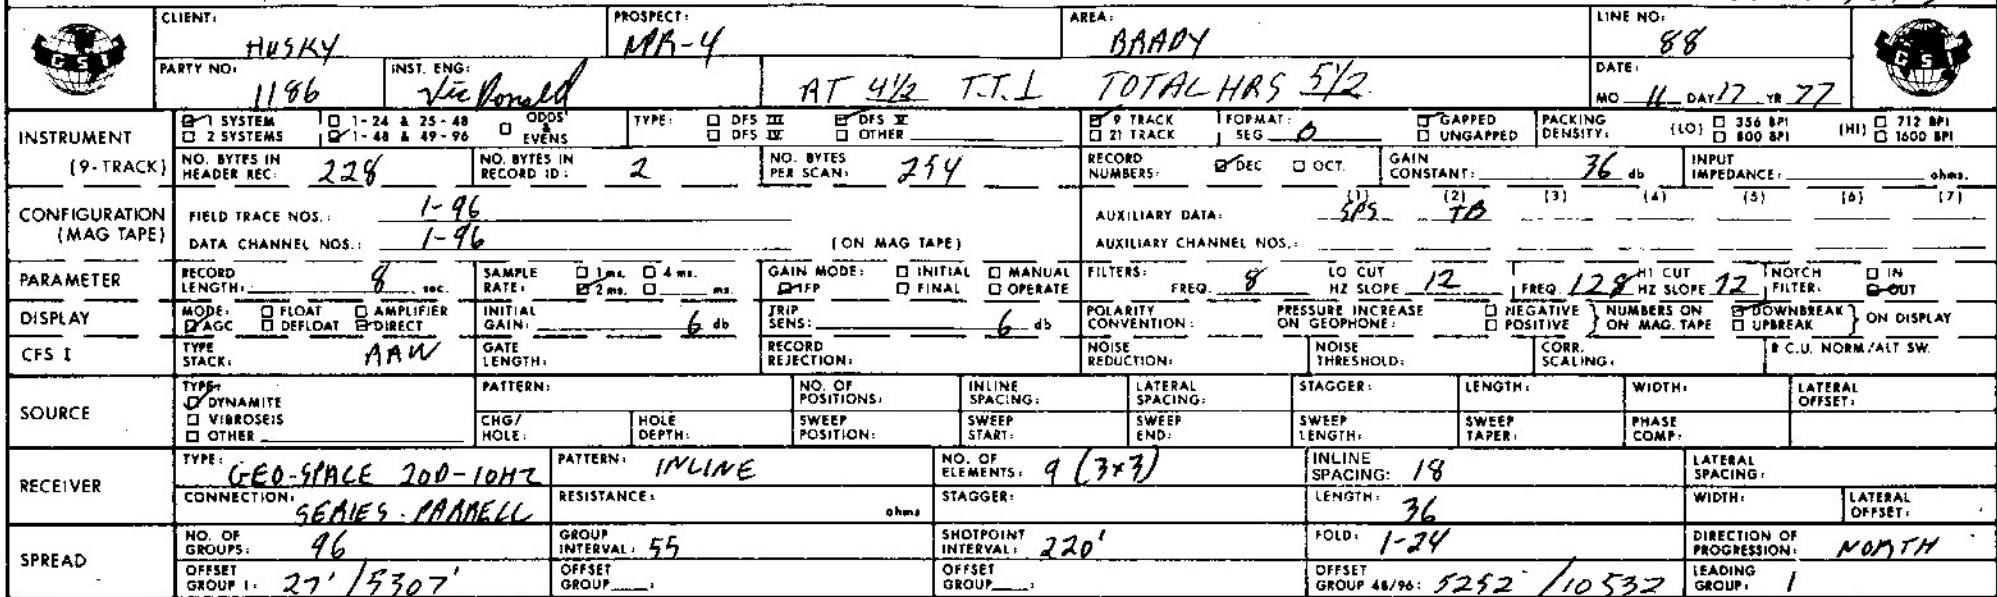 CLIENT: HUSKY PROSPECT: MPR-4 AREA: BRADY LINE NO: 88
GSI GSI
PARTY NO: 1186 INST. ENG: Vic Donald AT 4½ T.T. 1 TOTAL HRS 5½ DATE: MO 11 DAY 17 YR 77
INSTRUMENT (9-TRACK) 1 SYSTEM 1-24 & 25-48 ODDS & EVENS TYPE: DFS III DFS V 9 TRACK FORMAT: GAPPED PACKING DENSITY: (LO) 356 BPI (HI) 712 BPI
2 SYSTEMS 1-48 & 49-96 DFS IV OTHER 21 TRACK SEG UNGAPPED 800 BPI 1600 BPI
NO. BYTES IN HEADER REC: 228 NO. BYTES IN RECORD ID: 2 NO. BYTES PER SCAN: 254 RECORD NUMBERS: DEC OCT. GAIN CONSTANT: 36 db INPUT IMPEDANCE: ohms.
CONFIGURATION (MAG TAPE) FIELD TRACE NOS.: 1-96 AUXILIARY DATA: (1) SPS (2) TB (3) (4) (5) (6) (7)
DATA CHANNEL NOS.: 1-96 (ON MAG TAPE) AUXILIARY CHANNEL NOS.:
PARAMETER RECORD LENGTH: 8 sec. SAMPLE RATE: 1 ms. 4 ms. 2 ms. ms. GAIN MODE: INITIAL MANUAL IFP FINAL OPERATE FILTERS: FREQ. 8 LO CUT HZ SLOPE 12 FREQ. 128 HI CUT HZ SLOPE 72 NOTCH FILTER: IN OUT
DISPLAY MODE: FLOAT AMPLIFIER AGC DEFLOAT DIRECT INITIAL GAIN: 6 db TRIP SENS: 6 db POLARITY CONVENTION: PRESSURE INCREASE ON GEOPHONE: NEGATIVE POSITIVE } NUMBERS ON MAG. TAPE DOWNBREAK UPBREAK } ON DISPLAY
CFS I TYPE STACK: AAW GATE LENGTH: RECORD REJECTION: NOISE REDUCTION: NOISE THRESHOLD: CORR. SCALING: R.C.U. NORM/ALT SW.
SOURCE TYPE: DYNAMITE VIBROSEIS OTHER PATTERN: NO. OF POSITIONS: INLINE SPACING: LATERAL SPACING: STAGGER: LENGTH: WIDTH: LATERAL OFFSET:
CHG/HOLE: HOLE DEPTH: SWEEP POSITION: SWEEP START: SWEEP END: SWEEP LENGTH: SWEEP TAPER: PHASE COMP:
RECEIVER TYPE: GEO-SPACE 20D-10HZ PATTERN: INLINE NO. OF ELEMENTS: 9 (3x3) INLINE SPACING: 18 LATERAL SPACING:
CONNECTION: SERIES-PARRELL RESISTANCE: ohms STAGGER: LENGTH: 36 WIDTH: LATERAL OFFSET:
SPREAD NO. OF GROUPS: 96 GROUP INTERVAL: 55 SHOTPOINT INTERVAL: 220' FOLD: 1-24 DIRECTION OF PROGRESSION: NORTH
OFFSET GROUP 1: 27' /5307' OFFSET GROUP : OFFSET GROUP : OFFSET GROUP 48/96: 5252 /10532 LEADING GROUP: 1